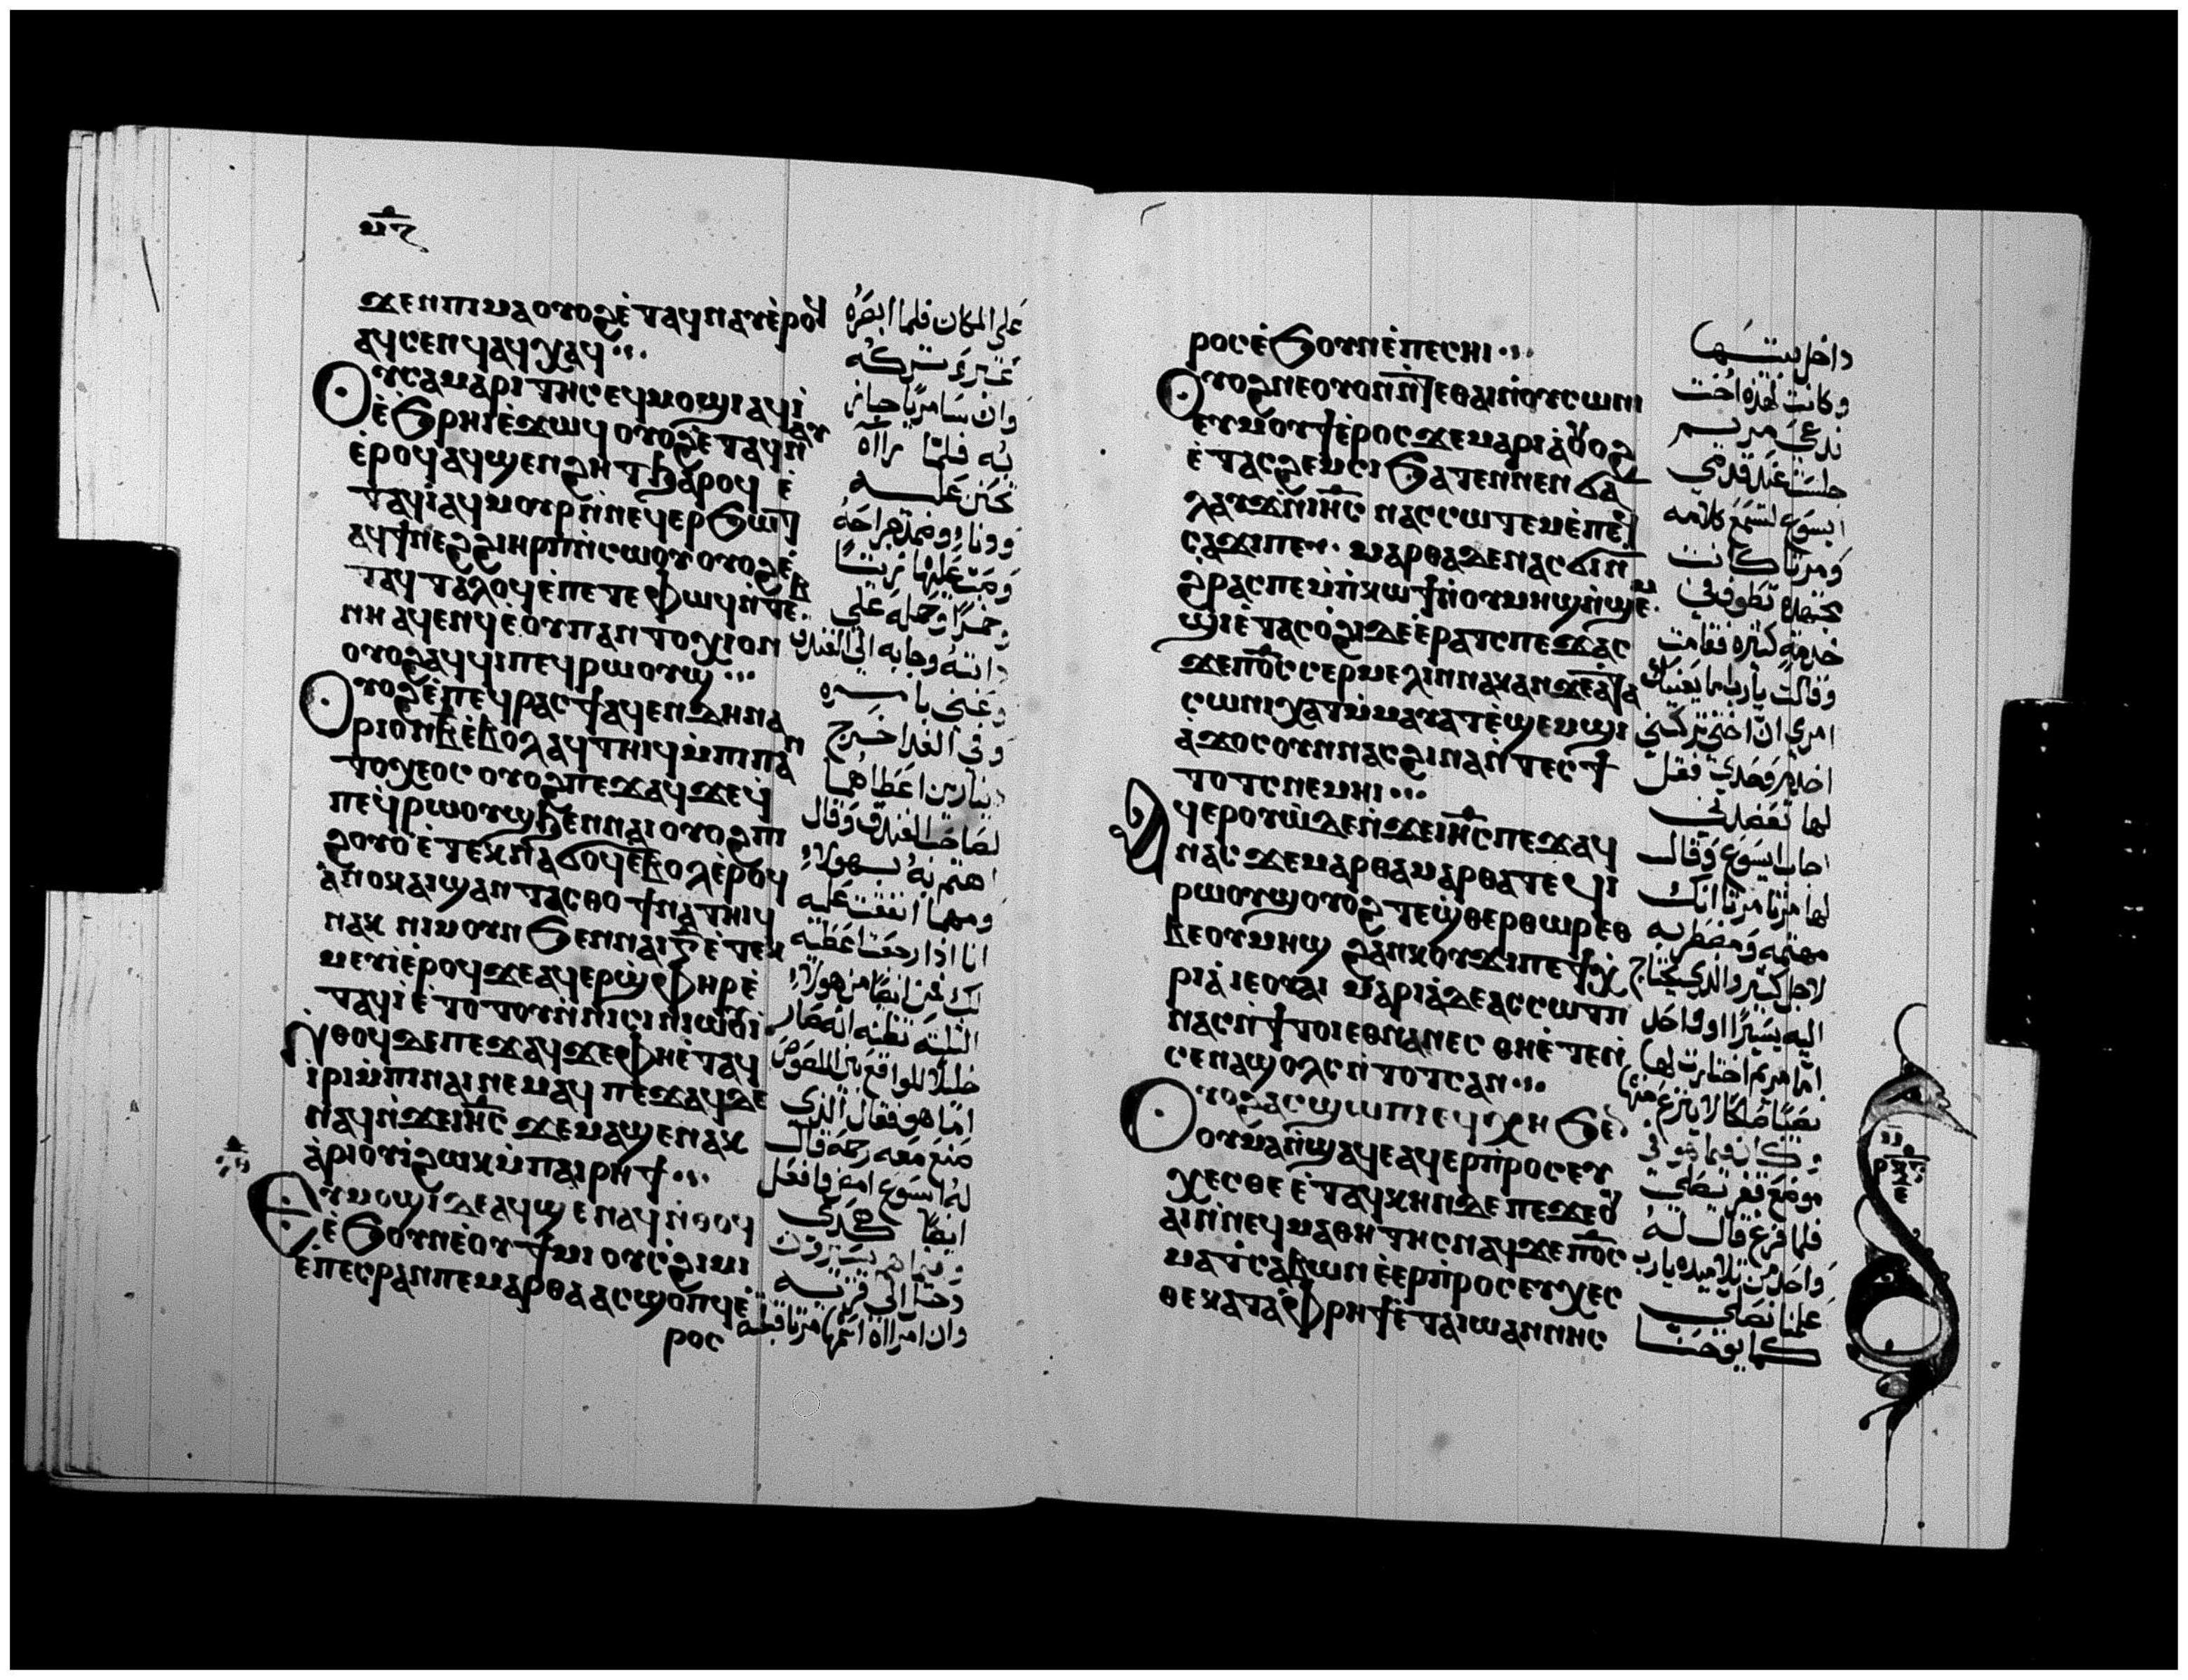 ϫⲉⲛⲡⲓⲙⲁⲟⲩⲟϩⲉ̇ⲧⲁϥⲛⲁⲩⲉ̇ⲣⲟϥ
ⲁϥⲥⲉⲛϥⲁϥⲭⲁϥ
ⲟⲩⲥⲁⲙⲁⲣⲓⲧⲏⲥⲉϥⲙⲟϣⲓⲁϥⲓ̇
ⲉ̇ϧⲣⲏⲓⲉ̇ϫⲱϥⲟⲩⲟϩⲉ̇ⲧⲁϥⲛⲁⲩ
ⲉ̇ⲣⲟϥⲁϥϣⲉⲛϩⲏⲧϧⲁⲣⲟϥ ⲉ̇
ⲧⲁϥⲓ̇ⲁϥⲙⲟⲩⲣⲛ̇ⲛⲉϥⲉⲣϧⲱϯ
ⲁϥϯⲛⲉϩϩⲓⲏⲣⲡⲛ̇ⲥⲱⲟⲩⲟⲩⲟϩⲉ̇
ⲧⲁϥⲧⲁⲗⲟϥⲉ̇ⲡⲉⲧⲉⲫⲱϥⲛ̇ⲧⲉⲃ
ⲛⲏⲁϥⲉⲛϥⲉ̇ⲟⲩⲡⲁⲛⲧⲟⲭⲓⲟⲛ
ⲟⲩⲟϩⲁϥϥⲓⲡⲉϥⲣⲱⲟⲩϣ
ⲟⲩⲟϩⲉ̇ⲡⲉϥⲣⲁⲥϯⲁϥⲉⲛⲇⲏⲛⲁ
ⲣⲓⲟⲛⲃ̅ⲉ̇ⲃⲟⲗⲁϥⲧⲏⲓϥⲙ̇ⲡⲓⲡⲁⲛ
ⲧⲟⲭⲉⲟⲥⲟⲩⲟϩⲡⲉϫⲁϥϫⲉϥⲓ̇
ⲡⲉϥⲣⲱⲟⲩϣϧⲉⲛⲛⲁⲓⲟⲩⲟϩⲡⲓ
ϩⲟⲩⲟⲉ̇ⲧⲉⲕⲛⲁϭⲟϥⲉ̇ⲃⲟⲗⲉ̇ⲣⲟϥ
ⲁ̇ⲛⲟⲕⲁⲓϣⲁⲛⲧⲁⲥⲑⲟϯⲛⲁⲧⲏⲓϥ
ⲛⲁⲕ ⲛⲓⲙⲟⲩⲛϧⲉⲛⲛⲁⲓⲅ̅ⲉ̇ⲧⲉⲕ
ⲙⲉⲩⲓ̇ⲉ̇ⲣⲟϥϫⲉⲁϥⲉⲣϣ̇ⲫⲏⲣⲉ̇
ⲧⲁϥⲓ̇ⲉ̇ⲧⲟⲧⲟⲩⲛ̇ⲛⲓⲥⲓⲛⲓⲱⲟⲩⲓ̇
ⲛ̇ⲑⲟϥⲇⲉⲡⲉϫⲁϥϫⲉⲫⲏⲉ̇ⲧⲁϥ
ⲓ̇ⲣⲓⲙ̇ⲡⲓⲛⲁⲓⲛⲉⲙⲁϥ ⲡⲉϫⲁϥⲇⲉ
ⲛⲁϥⲛ̇ϫⲉⲓⲏ̅ⲥ̅ ϫⲉⲙⲁϣⲉⲛⲁⲕ
ⲁ̇ⲣⲓⲟⲩⲓ̇ϩⲱⲕⲙ̇ⲡⲁⲓⲣⲏϯ
ⲉⲩⲙⲟϣⲓⲇⲉⲁϥϣⲉⲛⲁϥⲛ̇ⲑⲟϥ
ⲉ̇ϧⲟⲩⲛⲉ̇ⲟⲩϯⲙⲓ ⲟⲩⲥϩⲓⲙⲓ
ⲉ̇ⲡⲉⲥⲣⲁⲛⲡⲉⲙⲁⲣⲑⲁⲁⲥϣⲟⲡϥⲉ̇
ⲣⲟⲥ
على المكان فلما ابصره
عبر وتركه
وان سامريا جاز
به فلما رآه
تحنن عليه
ودنا وضمد جراحه
وصب عليها زيتا
وخمرا وحمله على
دابته وجابه الى الفندق
وعني بامره
وفي الغد اخرج
دينارين اعطاهما
لصاحب الفندق وقال
اهتم به بهولاء
ومهما انفقت عليه
انا اذا رجعت اعطيه
لك فمن ايضا من هولاء
الثلثه تظنه انه صار
خليلا للواقع بين اللصوص
اما هو فقال الذي
صنع معه رحمه قال
له ايسوع امض فافعل
ايضا كذلك
وفيما هم يسيرون
دخل الى قريه
وان امرااه اسمها مرتا قبلته
ⲣⲟⲥⲉ̇ϧⲟⲩⲛⲉ̇ⲡⲉⲥⲏⲓ
ⲟⲩⲟϩⲛⲉⲟⲩⲟⲛⲛ̇ϯⲉⲑⲁⲓⲛ̇ⲟⲩⲥⲱⲛⲓ
ⲉⲩⲙⲟⲩϯⲉ̇ⲣⲟⲥϫⲉⲙⲁⲣⲓⲁ̇ⲟⲩⲟϩ
ⲉ̇ⲧⲁⲥϩⲉⲙⲥⲓϧⲁⲧⲉⲛⲛⲉⲛϭⲁ
ⲗⲁⲩϫⲛ̇ⲓⲏ̅ⲥ̅ ⲛⲁⲥⲥⲱⲧⲉⲙⲉ̇ⲡⲉϥ
ⲥⲁϫⲓⲡⲉ ⲙⲁⲣⲑⲁⲇⲉⲛⲁⲥϭⲓⲡ
ϩ̇ⲣⲁⲥⲡⲉⲙ̇ⲡ̇ⲕⲱϯⲛ̇ⲟⲩⲙⲏϣⲛ̇ϣⲉⲙ
ϣⲓⲉ̇ⲧⲁⲥⲟ̇ϩⲓⲇⲉⲉ̇ⲣⲁⲧⲥⲡⲉϫⲁⲥ
ϫⲉⲡⲟ̅ⲥ̅ⲥⲉⲣⲙⲉⲗⲓⲛⲛⲁⲕⲁⲛϫⲉⲁ̇ⲧⲁ
ⲥⲱⲛⲓⲭⲁⲧⲙ̇ⲙⲁⲩⲁⲧⲉ̇ϣⲉⲙϣⲓ
ⲁ̇ϫⲟⲥⲟⲩⲛⲛⲁⲥϩⲓⲛⲁⲛ̇ⲧⲉⲥϯ
ⲧⲟⲧⲥⲛⲉⲙⲏⲓ
ⲁϥⲉⲣⲟⲩⲱ̇ⲇⲉⲛ̇ϫⲉⲓⲏ̅ⲥ̅ⲡⲉϫⲁϥ
ⲛⲁⲥϫⲉⲙⲁⲣⲑⲁⲙⲁⲣⲑⲁⲧⲉϥⲓ
ⲣⲱⲟⲩϣⲟⲩⲟϩⲧⲉϣ̇ⲑⲉⲣⲑⲱⲣⲉⲑ
ⲃⲉⲟⲩⲙⲏϣ ϩⲁⲛⲕⲟⲩϫⲓⲡⲉⲧⲭ
ⲣⲓⲁ̇ⲓⲉⲟⲩⲁⲓ ⲙⲁⲣⲓⲁ̇ⲇⲉⲁⲥⲥⲱⲧⲡ
ⲛⲁⲥⲛ̇ϯⲧⲟⲓⲉⲑⲛⲁⲛⲉⲥ ⲑⲏⲉ̇ⲧⲉⲛ̇
ⲥⲉⲛⲁϣⲟⲗⲥⲛ̇ⲧⲟⲧⲥⲁⲛ
ⲟⲩⲟϩⲁⲥϣⲱⲡⲓⲉϥⲭⲏ ϧⲉⲛ
ⲟⲩⲙⲁⲛ̇ϣⲁϥⲉⲁϥⲉⲣⲡ̇ⲣⲟⲥⲉⲩ
ⲭⲉⲥⲑⲉ ⲉ̇ⲧⲁϥⲭⲏⲛⲇⲉ ⲡⲉϫⲉⲟⲩ
ⲁⲓⲛ̇ⲛⲉϥⲙⲁⲑⲏⲧⲏⲥⲛⲁϥϫⲉⲡⲟ̅ⲥ̅
ⲙⲁⲧⲥ̇ⲁⲃⲱⲛ ⲉ̇ⲉⲣⲡ̇ⲣⲟⲥⲉⲩⲭⲉⲥ
ⲑⲉⲕⲁⲧⲁⲫ̇ⲣⲏϯⲉ̇ⲧⲁⲓⲱⲁⲛⲛⲏⲥ
داخل بيتها
وكانت لهذه اخت
تدعى مريم
جلست عند قدمي
ايسوع لتسمع كلامه
ومرتا كانت
مجتهده تطوف في
خدمة كثيره فقامت
وقالت يارب ما يعنيك
امري ان اختي تركتني
اخدم وحدي فقل
لها تعضدني
اجاب ايسوع وقال
لها مرتا مرتا انك
مهتمه ومضطربه
لاجل كثير والذي يحتاج
اليه يسيرا او واحد
اما مريم اختارت لها
نصيبا صالحا لا ينزع منها
وكان فيما هو في
موضع قفر يصلي
فلما فرغ قال له
واحد من تلاميذه يارب
علمنا نصلي
كما يوحنا